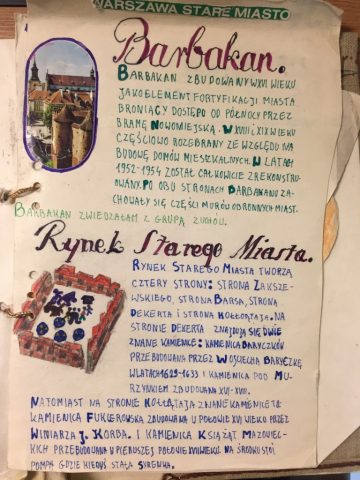 WARSZAWA STARE MIASTO
Barbakan.
BARBAKAN ZBUDOWANY W XVI WIEKU
JAKO ELEMENT FORTYFIKACJI MIASTA
BRONIĄCY DOSTĘPO OD PÓŁNOCY PRZEZ
BRAMĘ NOWOMIEJSKĄ. W XVIII I XIX WIEKU
CZĘŚCIOWO ROZEBRANY ZE WZGLĘDU NA
BUDOWĘ DOMÓW MIESZKALNYCH. W LATACH
1952-1954 ZOSTAŁ CAŁKOWICIE ZREKONSTRU-
OWANY. PO OBU STRONACH BARBAKANU ZA-
CHOWAŁY SIĘ CZĘŚCI MURÓW OBRONNYCH MIAST.
BARBAKAN ZWIEDZAŁAM Z GRUPĄ ZUCHÓW.
Rynek Starego Miasta.
RYNEK STAREGO MIASTA TWORZĄ
CZTERY STRONY: STRONA ZAKRZE-
WSKIEGO, STRONA BARSA, STRONA
DEKERTA I STRONA KOŁŁĄTAJA. NA
STRONIE DEKERTA ZNAJDUJĄ SIĘ DWIE
ZNANE KAMIENICE: KAMIENICA BARYCZKÓW
PRZEBUDOWANA PRZEZ WOJCIECHA BARYCZKĘ
W LATACH 1629-1633 I KAMIENICA POD MU-
RZYNKIEM ZBUDOWANA XVI-XVII.
NATOMIAST NA STRONIE KOŁŁĄTAJA ZNANE KAMIENICE TO
KAMIENICA FUKIEROWSKA ZBUDOWANA W POŁOWIE XVI WIEKU PRZEZ
WINIARZA J. KORBA. I KAMIENICA KSIĄŻĄT MAZOWIEC-
KICH PRZEBUDOWANA W PIERWSZEJ POŁOWIE XVII WIEKU. NA ŚRODKU STOI
POMPA GDZIE KIEDYŚ STAŁA SYRENKA.